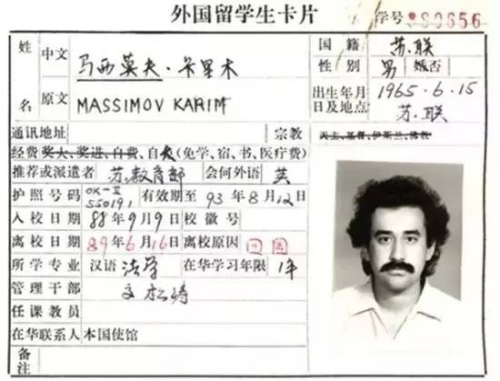 外国留学生卡片 学号880656
姓 中文 马西莫夫·卡里木 国籍 苏联
性别 男 婚否
名 原文 MASSIMOV KARIM 出生年月日及地点 1965.6.15 苏联
通讯地址 宗教 天主、基督、伊斯兰、佛教
经费 奖大、奖进、自费、自大(免学、宿、书、医疗费)
推荐或派遣者 苏教育部 会何外语 英
护照号码 有效期至 93年8月12日
入校日期 88年9月9日 校徽号
离校日期 89年6月16日 离校原因 回国
所学专业 汉语 法学 在华学习年限 1年
管理干部
任课教员
在华联系人 本国使馆
备注